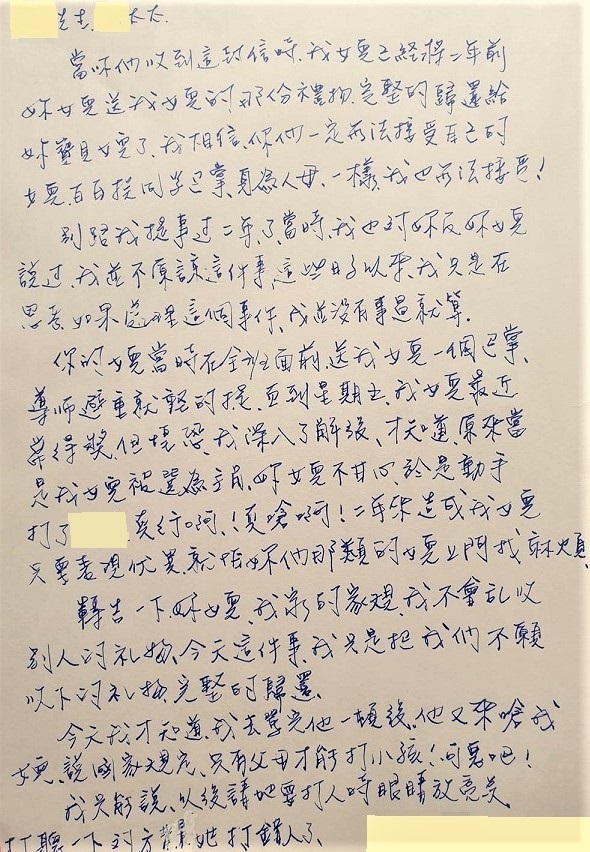 先生 太太
當你們收到這封信時,我女兒已經將二年前
妳女兒送我女兒的那份禮物,完整的歸還給
妳寶貝女兒了,我相信,你們一定無法接受自己的
女兒,百百挨同学巴掌,身為人母,一樣,我也無法接受!
別跟我提事过二年了,當時,我也对妳及妳女兒
說过,我並不原諒這件事,這些日子以來,我只是在
思考,如果處理這個事件,我並沒有事過就算.
你的女兒當時在全班面前,送我女兒一個巴掌.
導師避重就輕的提,直到星期五,我女兒最近
常得獎,但惶恐,我深入了解後,才知道,原來當
是我女兒被選為,妳女兒不甘心,於是動手
打了 真行啊!真嗆啊!二年來造成我女兒
只要表現优異,就怕妳他那類的女兒上門找麻煩.
轉告一下,妳女兒,我家的家規,我不會乱收
別人的礼物,今天這件事,我只是把我們不願
收下的礼物,完整的歸還.
今天我才知道,我去學完他一頓後,他又來嗆我
女兒,說國家規定,只有父母才能打小孩!可惡吧!
我只能說,以後請她要打人時眼睛放亮点,
打聽一下对方背景,她打錯人了.